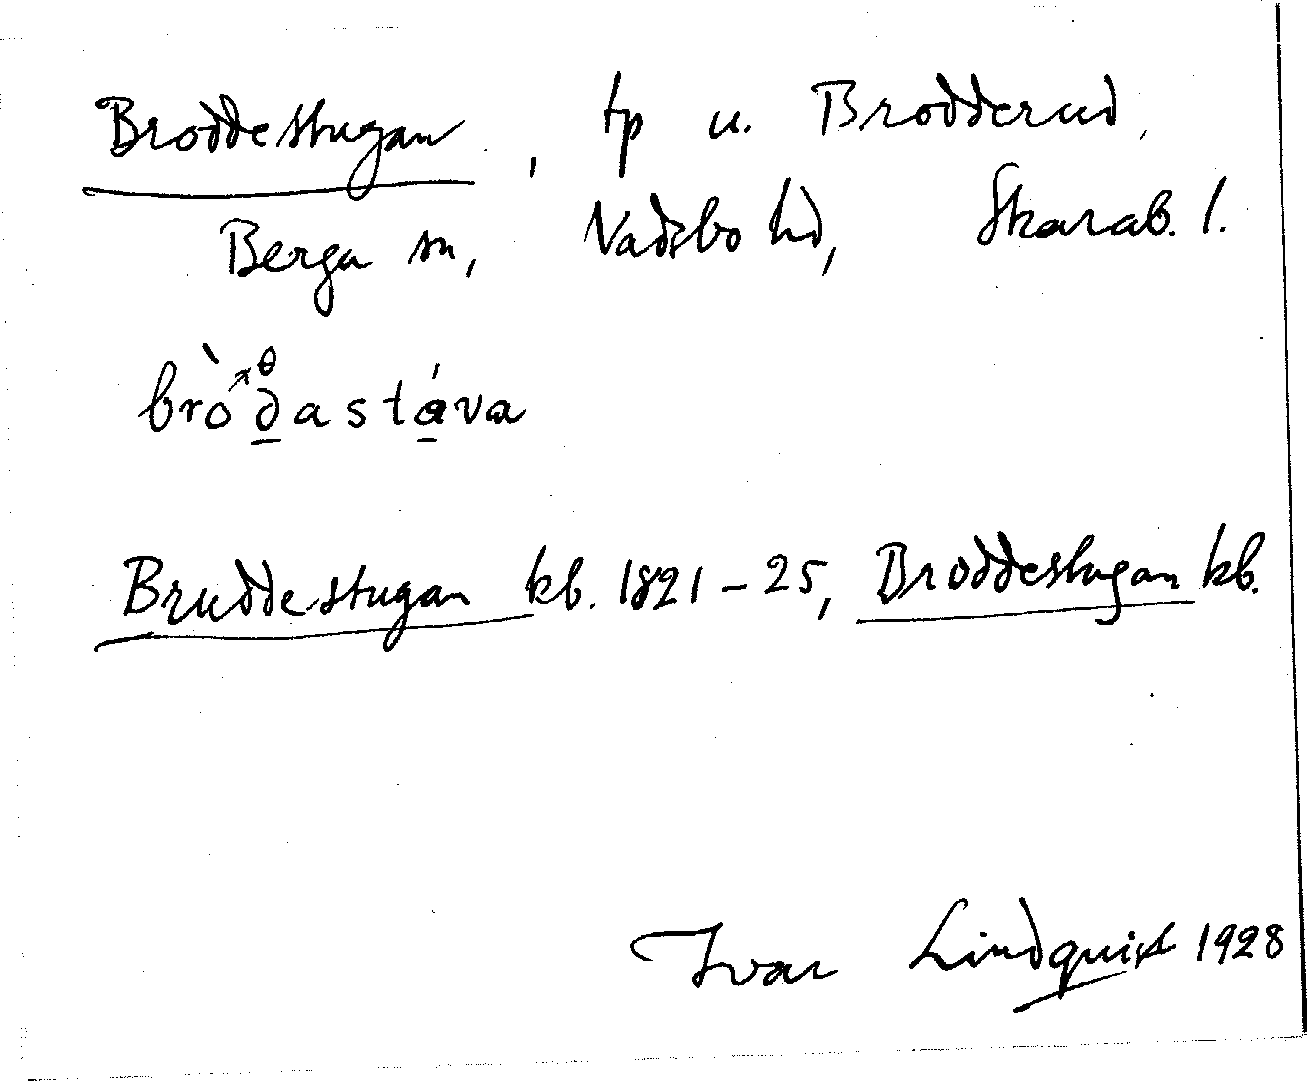 Broddestugan, tp u. Brodderud,
Berga sn, Vadsbo hd, Skarab. l.
Bruddestugan kb. 1821–25, Broddestugan kb.
Ivar Lindquist 1928